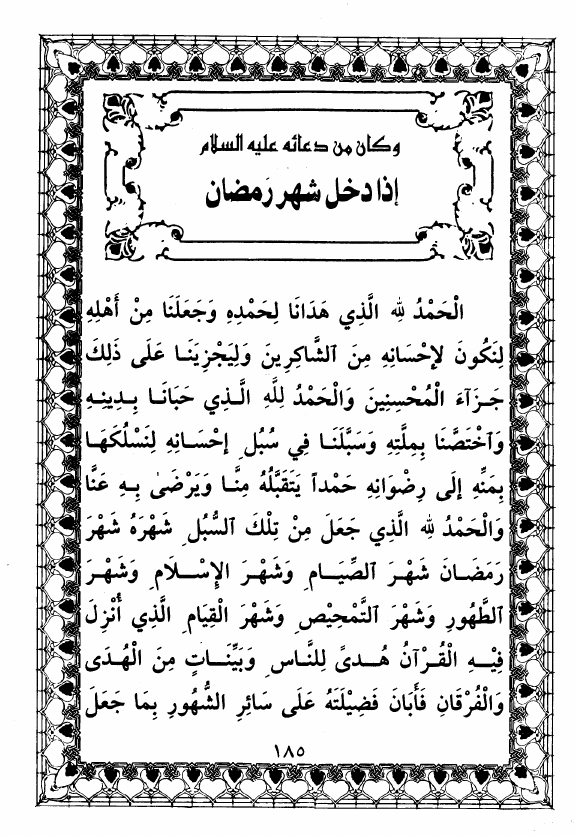 وكان من دعائه عليه السلام
إذا دخل شهر رَمضان
الْحَمْدُ لِلّٰهِ الَّذِي هَدَانَا لِحَمْدِهِ وَجَعَلَنَا مِنْ أَهْلِهِ
لِنَكُونَ لإِحْسَانِهِ مِنَ الشَّاكِرِينَ وَلِيَجْزِيَنَا عَلَى ذَلِكَ
جَزَآءَ الْمُحْسِنِينَ وَالْحَمْدُ لِلَّهِ الَّذِي حَبَانَا بِدِينِهِ
وَٱخْتَصَّنَا بِمِلَّتِهِ وَسَبَّلَنَا فِي سُبُلِ إحْسَانِهِ لِنَسْلُكَهَا
بِمَنِّهِ إلَى رِضْوَانِهِ حَمْداً يَتَقَبَّلُهُ مِنَّا وَيَرْضَىٰ بِهِ عَنَّا
وَالْحَمْدُ لِلّٰهِ الَّذِي جَعَلَ مِنْ تِلْكَ ٱلسُّبُلِ شَهْرَهُ شَهْرَ
رَمَضَانَ شَهْرَ ٱلصِّيَامِ وَشَهْرَ الإِسْلَامِ وَشَهْرَ
ٱلطَّهُورِ وَشَهْرَ ٱلتَّمْحِيْصِ وَشَهْرَ الْقِيَامِ الَّذِي أُنْزِلَ
فِيهِ الْقُرْآنُ هُدىً لِلنَّاسِ وَبَيِّنَاتٍ مِنَ الْهُدَى
وَالْفُرْقَانِ فَأَبَانَ فَضِيْلَتَهُ عَلَى سَائِرِ الشُّهُورِ بِمَا جَعَلَ
١٨٥